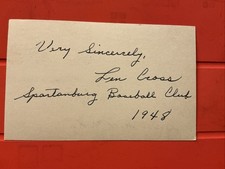 Very Sincerely,
Len Cross
Spartanburg Baseball Club
1948